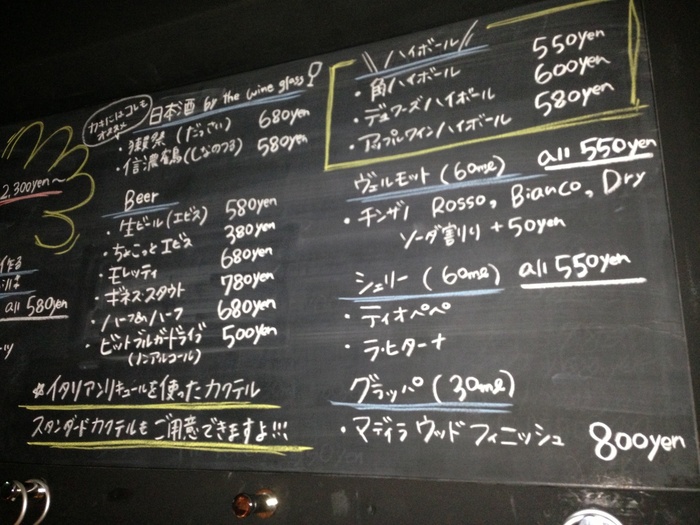 2,300yen〜
all 580yen
カキにはコレも
オススメ
日本酒 by the wine glass
・獺祭（だっさい） 680yen
・信濃鶴（しなのつる） 580yen
Beer
・生ビール（エビス） 580yen
・ちょこっとエビス 380yen
・モレッティ 680yen
・ギネス・スタウト 780yen
・ハーフ&ハーフ 680yen
・ビットブルガードライブ 500yen
（ノンアルコール）
☆イタリアンリキュールを使ったカクテル
スタンダードカクテルもご用意できますよ!!!
ハイボール
・角ハイボール 550yen
・デュワーズハイボール 600yen
・アップルワインハイボール 580yen
ヴェルモット（60ml） all 550yen
・チンザノ Rosso, Bianco, Dry
ソーダ割り +50yen
シェリー（60ml） all 550yen
・ティオペペ
・ラ・ヒターナ
グラッパ（30ml）
・マディラ ウッド フィニッシュ 800yen